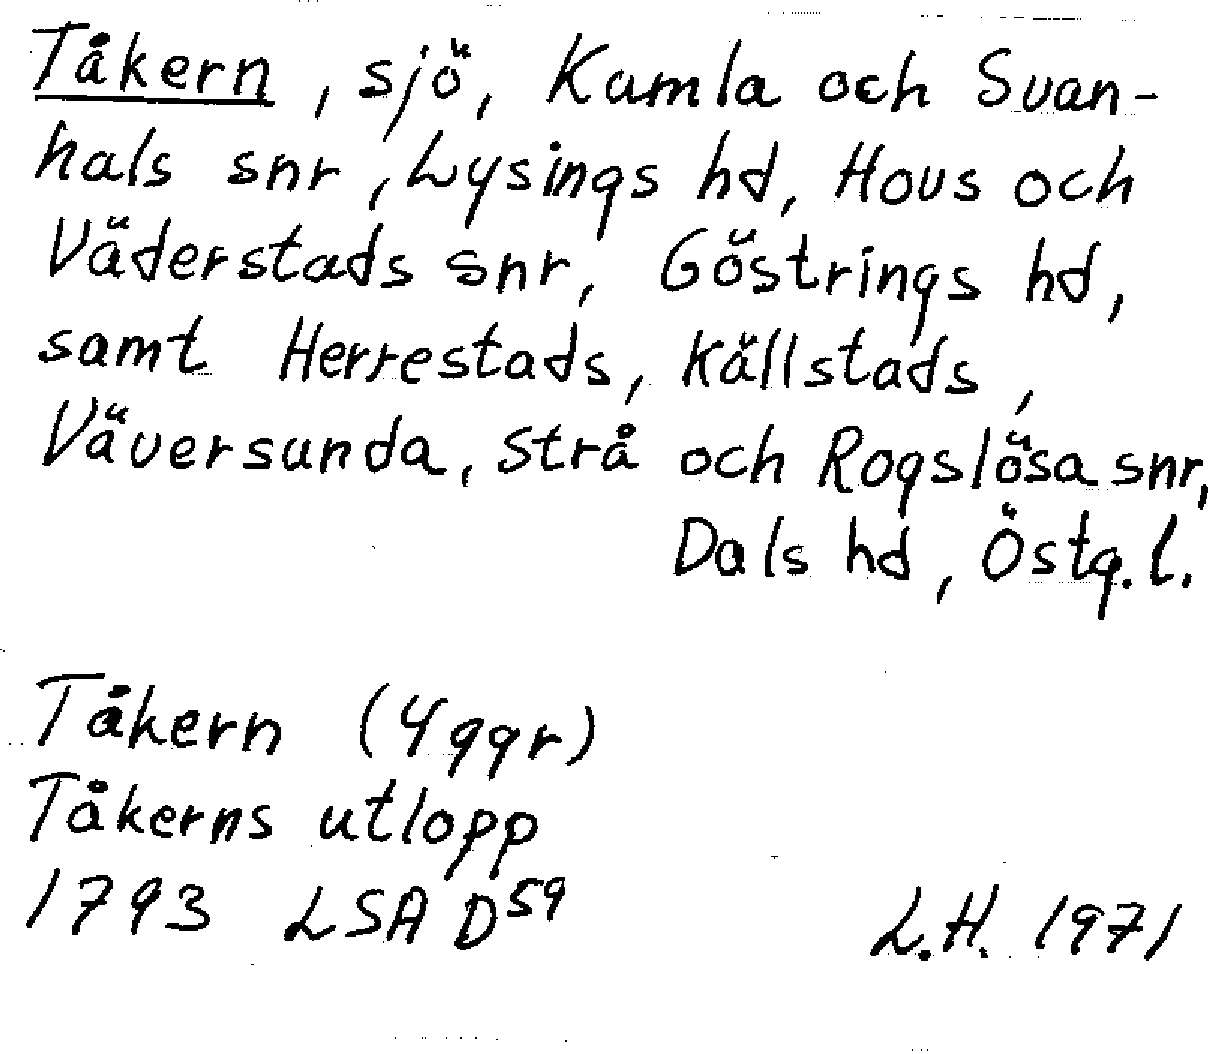 Tåkern, sjö, Kumla och Svan-
hals snr, Lysings hd, Hovs och
Väderstads snr, Göstrings hd,
samt Herrestads, Källstads,
Väversunda, Strå och Rogslösa snr,
Dals hd, Östg.l.
Tåkern (4 ggr)
Tåkerns utlopp
1793 LSA D59
L.H. 1971